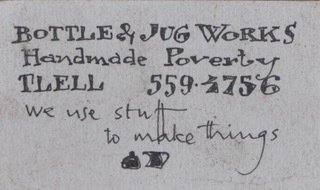 BOTTLE & JUG WORKS
Handmade Poverty
TLELL 559.4756
We use stuff
to make things